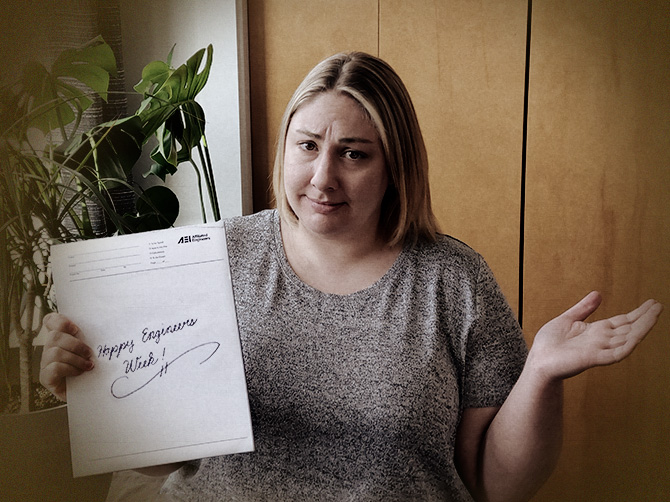 AEI Affiliated
Engineers
Happy Engineers
Week!